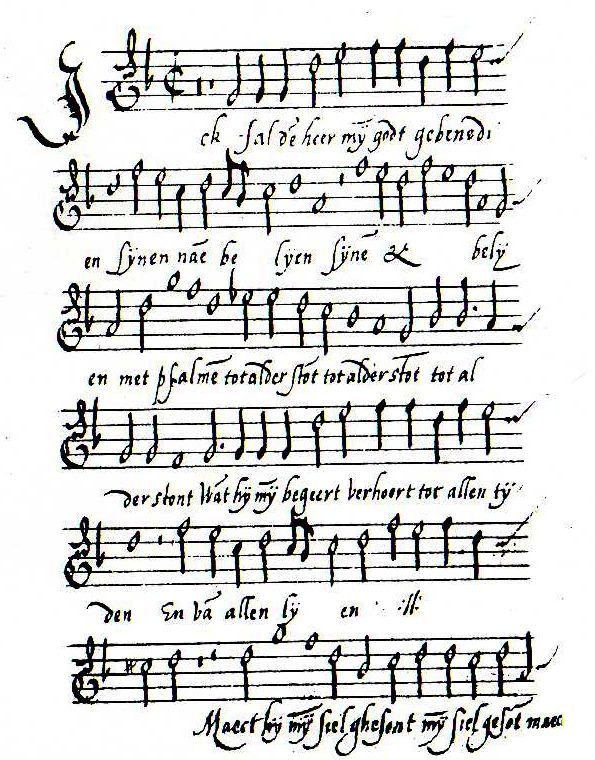 I
ck sal dē heer mÿ godt gebenedi
en sÿnen nāe be lyen sÿnē & belÿ
en met psalmē tot alder stōt tot alder stōt tot al
der stont Wāt hÿ mÿ begeert verhoert tot allen tÿ
den En vā allen lÿ en :||:
Maect hÿ mÿ siel ghesont mÿ siel gesōt maec